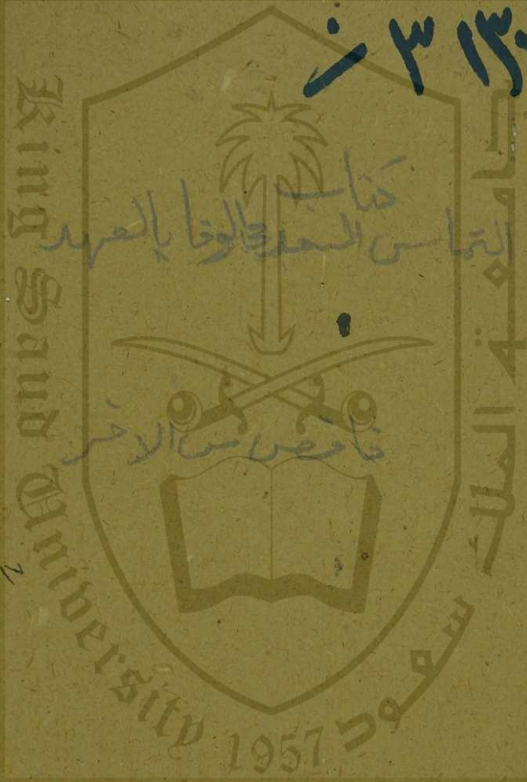 ٣١٣٠ ز
كتاب
التماس السعد في الوفا بالعهد
ناقص من الاخر
King Saud University
جامعة الملك سعود
1957